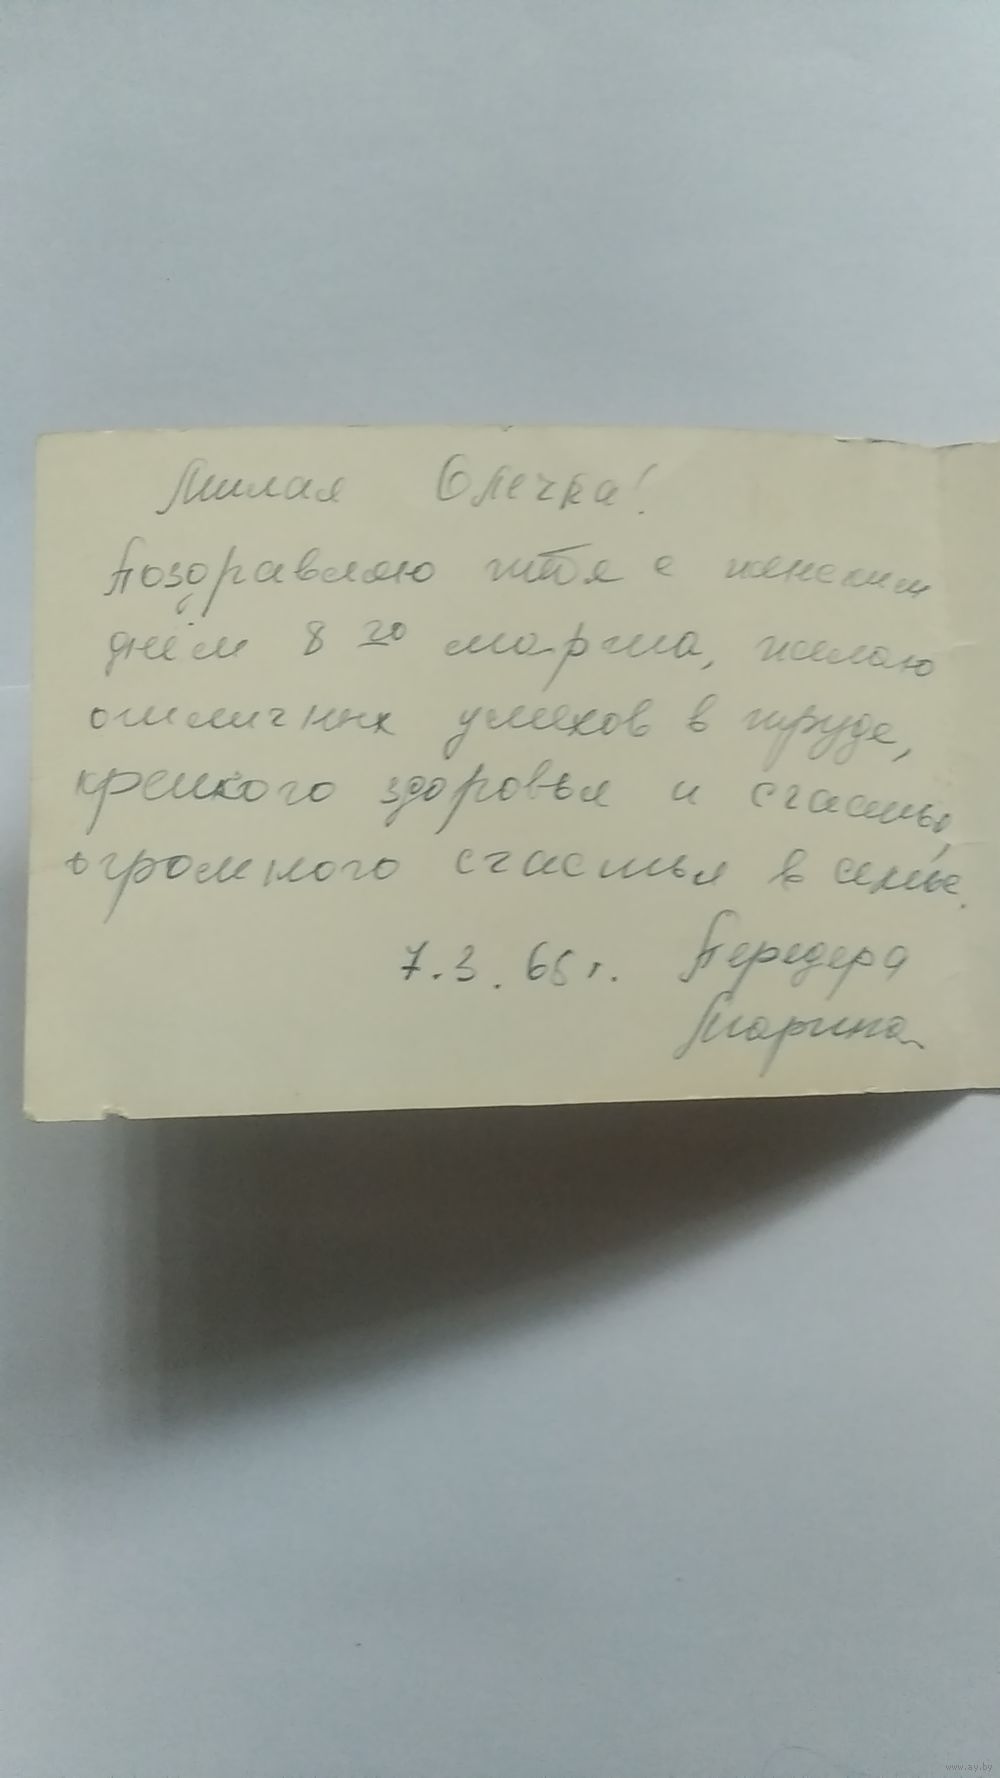 Милая Олечка!
Поздравляю тебя с женским
днём 8 го марта, желаю
отличных успехов в труде,
крепкого здоровья и счастья,
огромного счастья в семье.
7.3.66г. Передера
Марина
www.ay.by